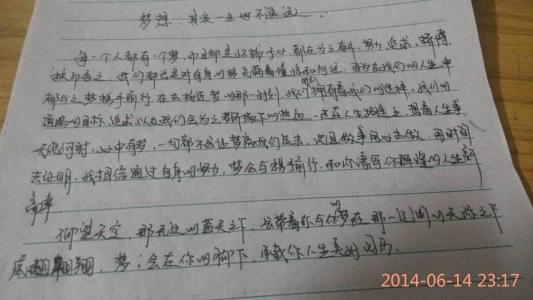 梦想，其实一点也不遥远
每一个人都有一个梦，而且都是怀揣于心都在为之奋斗，努力，追求，拼搏
执而为之，我们都总是对自身的梦充满着憧憬和向往，因为在我们的人生中
有与之梦携手前行，在去接近梦的那一时刻，我们拥有着我们的选择，我们的
道路的目标，追求以及我们会为之努力而撒下的热血，走在人生路途上，想着人生美
好绝何时，心中有梦，一切都不会让梦离我们远去，只且做事用心去做，用时间
去证明，我相信通过自身的努力，梦会与携手前行，和你谱写你辉煌的人生新
章
仰望天空，那无边的蓝天之下，会带着你与你的梦在那一辽阔的天际之下
展翅翱翔，梦，会在你的脚下，承载你人生美好的
2014-06-14 23:17